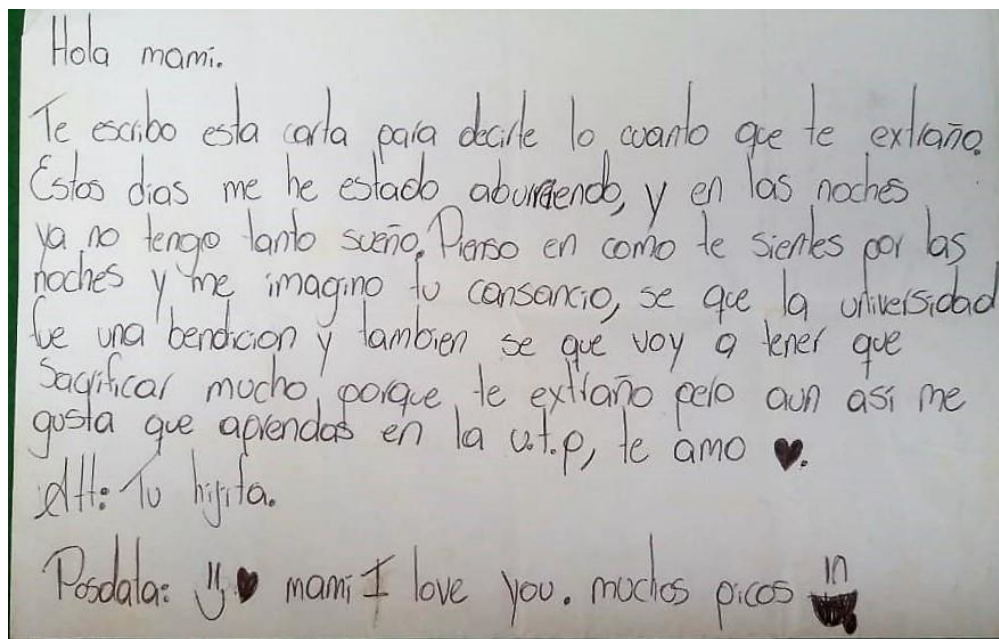 Hola mami.
Te escribo esta carta para decirte lo cuanto que te extraño.
Estos dias me he estado aburriendo, y en las noches
ya no tengo tanto sueño. Pienso en como te sientes por las
noches y me imagino tu cansancio, se que la universidad
fue una bendicion y tambien se que voy a tener que
sacrificar mucho porque te extraño pero aun asi me
gusta que aprendas en la u.t.p, te amo ♥.
Att: Tu hijita.
Posdata: ♥ mami I love you. muchos picos